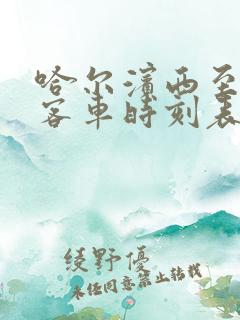 哈尔滨西至
客车时刻表
绫野优
未经同意禁止转载